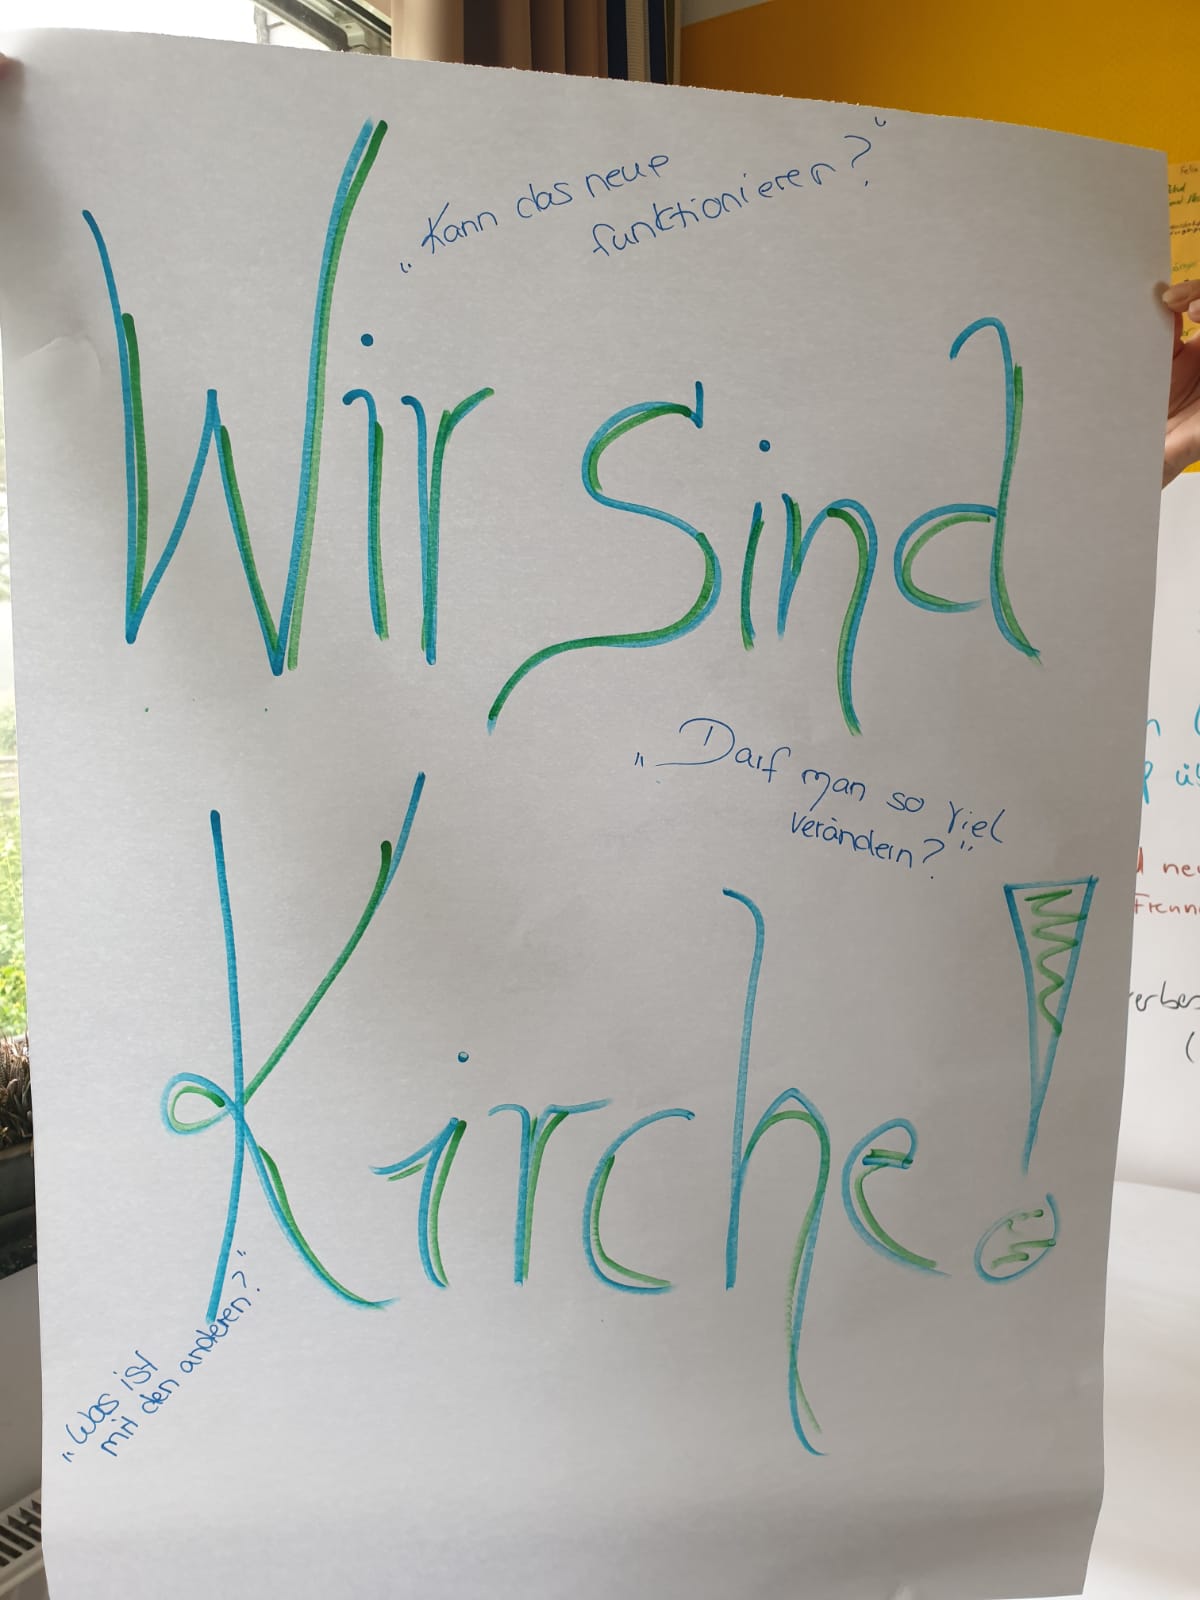 „Kann das neue
funktionieren?“
Wir sind
„Darf man so viel
verändern?“
Kirche!
„Was ist
mit den anderen?“